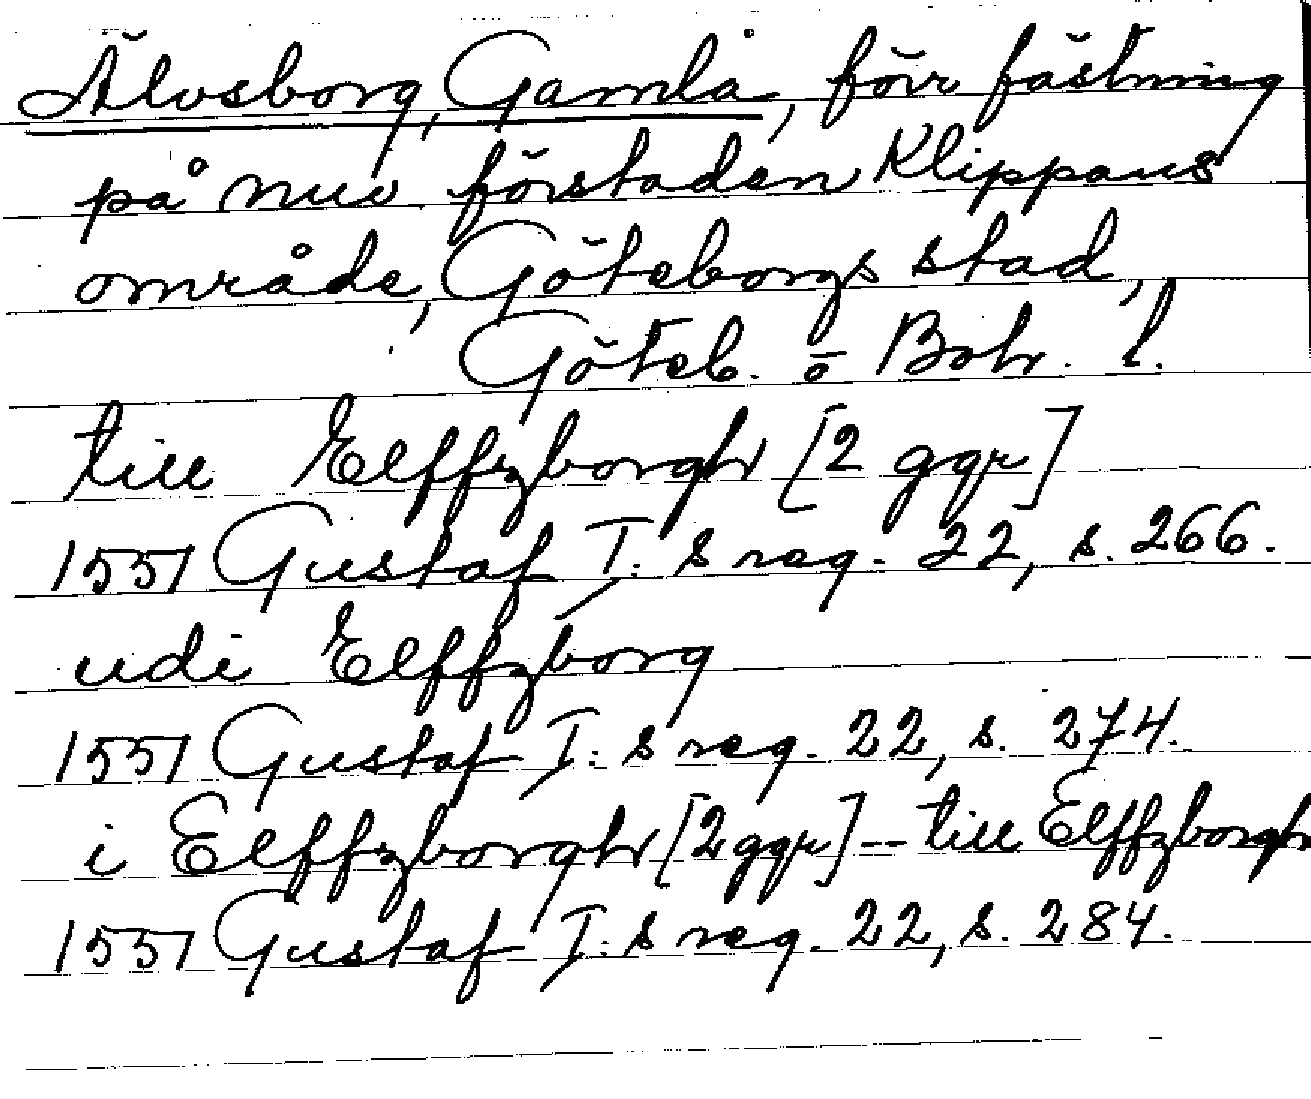 Älvsborg, Gamla, förr fästning
på nuv. förstaden Klippans
område, Göteborgs stad,
Göteb. o Boh. l.
till Elffzborgh [2 ggr]
1551 Gustaf I:s reg. 22, s. 266.
udi Elffzborg
1551 Gustaf I:s reg. 22, s. 274.
i Elffzborgh [2 ggr] -- till Elffzborgh
1551 Gustaf I:s reg. 22, s. 284.